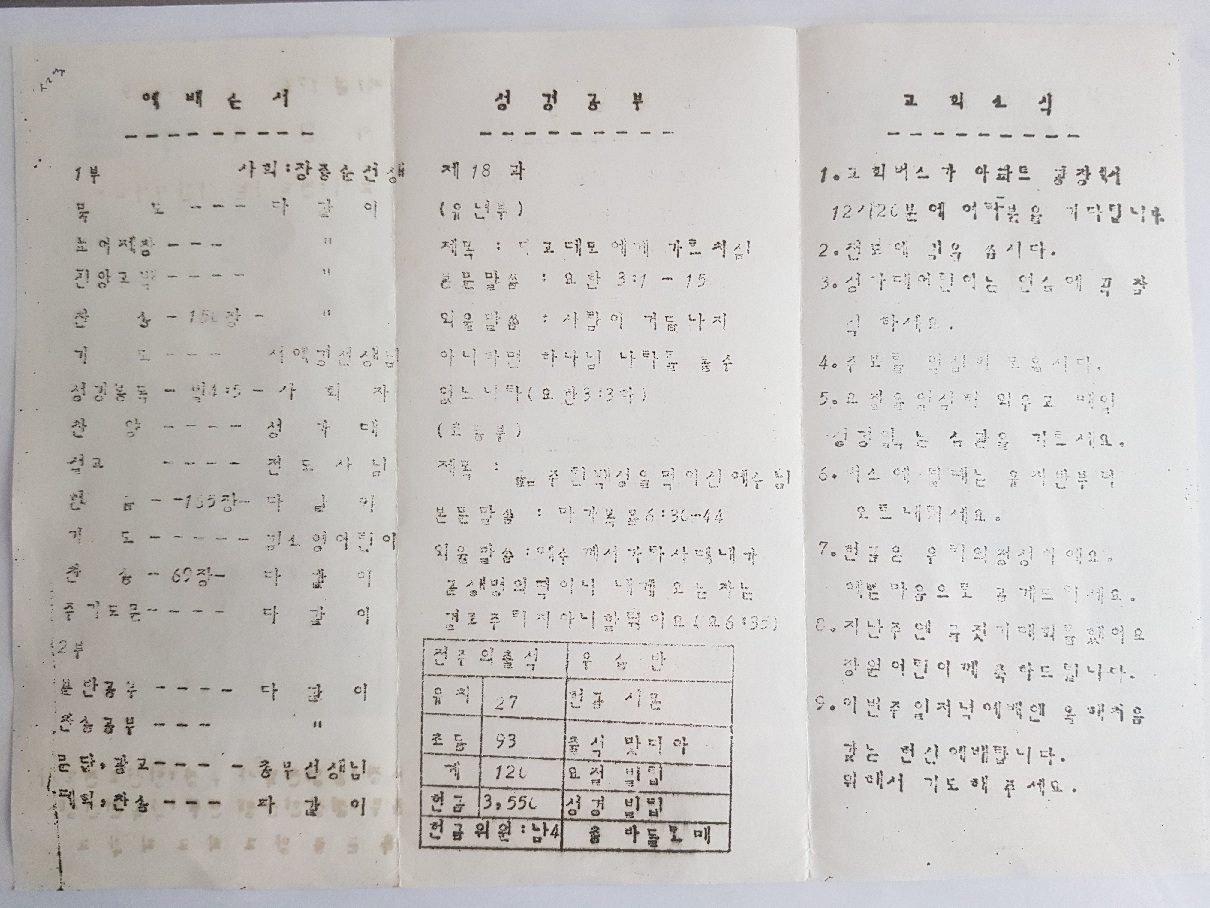 예 배 순 서
1부 사회:장종순선생
묵 도 --- 다 같 이
표어제창 --- "
신앙고백 ---- "
찬 송 - 150장 - "
기 도 ---- 선생님
성경봉독 - 빌4:5 - 사 회 자
찬 양 ---- 성 가 대
설교 ---- 전 도 사 님
헌 금 --185장- 다 같 이
기 도 ----- 김소영어린이
찬 송 - 69장- 다 같 이
주기도문---- 다 같 이
2부
분반공부 ---- 다 같 이
찬송공부 --- "
문답,광고---- - 총무선생님
폐회,찬송 --- 다 같 이
성 경 공 부
제 18 과
(유년부)
제목 : 니고데모에게 가르치심
본문말씀 : 요한 3:1 - 15
외울말씀 : 사람이 거듭나지
아니하면 하나님 나라를 볼수
없느니라(요한3:3)
(초등부)
제목 : 주린백성을먹이신예수님
본문말씀 : 마가복음6:30-44
외울말씀:예수께서가라사대내가
곧생명의떡이니 내게 오는자는
결코주리지아니할터이요(요6:35)
전주의출석 우 승 반
유치 27 헌금 시몬
초등 93 출석 맛디아
계 120 요절 빌립
헌금 3,550 성경 빌립
헌금위원:남4 춤 마돌로메
교 회 소 식
1.교회버스가 아파트 광장에서
12시20분에 여러분을 기다립니다
2.전도에 힘을 씁시다.
3.성가대어린이는 연습에 꼭 참
석 하세요.
4.주보를 열심히 모읍시다.
5.요절을열심히 외우고 매일
성경읽는 습관을 기르세요.
6. 버스에 탈때는 유치반부터
오르내리세요.
7.헌금은 우리의정성이예요.
예쁜마음으로 곱게드리세요.
8.지난주엔 대회를했어요
장원어린이께축하드립니다.
9.이번주일저녁예배엔 올해처음
갖는 헌신예배랍니다.
위해서 기도해 주세요.